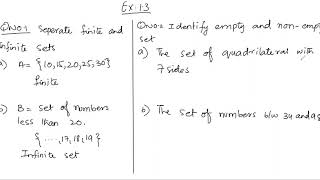 Ex:1.3
QNO:1 Seperate finite and
infinite sets
a) A= {10,15,20,25,30}
finite
b) B= set of numbers
less than 20.
{....,17,18,19}
Infinite set
QNO:2 Identify empty and non-empty
set
a) The set of quadrilateral with
7 sides
b) The set of numbers b/w 34 and